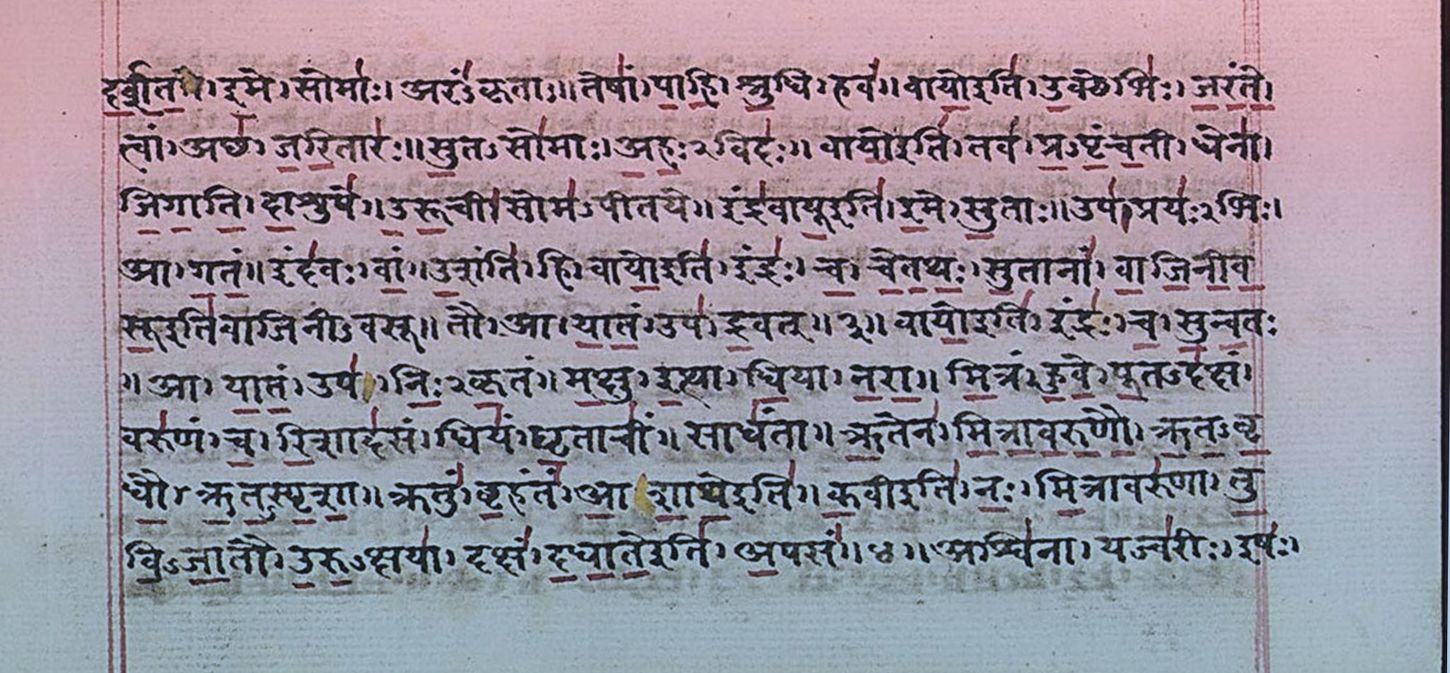 दर्शत। इमे। सोमाः। अरंऽकृताः॥ तेषां। पाहि। श्रुधि। हवं॥ वायोइति। उक्थेभिः। जरंते।
त्वां। अच्छ। जरितारः॥ सुतऽसोमाः। अहःऽविदः॥ वायोइति। तव। प्रऽपृंचती। धेना।
जिगाति। दाशुषे॥ उरूची। सोमऽपीतये॥ इंद्रवायूइति। इमे। सुताः॥ उप। प्रयःऽभिः।
आ। गतं॥ इंदवः। वां॥ उशंति। हि। वायोइति। इंद्रः। च। चेतथः। सुतानां। वाजिनीव
सूइतिवाजिनीऽवसू॥ तौ। आ। यातं। उप। द्रवत्॥ ३॥ वायोइति। इंद्रः। च। सुन्वतः
॥ आ। यातं। उप। निःऽकृतं॥ मक्षु। इत्था। धिया। नरा॥ मित्रं। हुवे। पूतऽदक्षं।
वरुणं। च। रिशादसं। धियं। घृताचीं॥ साधंता॥ ऋतेन। मित्रावरुणौ। ऋतऽवृ
धौ। ऋतऽस्पृशा॥ क्रतुं। बृहंतं। आ। शाथेइति॥ कवीइति। नः। मित्रावरुणा। तु
विऽजातौ। उरुऽक्षया। दक्षं। दधातेइति। अपसं॥ ४॥ अश्विना। यज्वरीः। इषः।